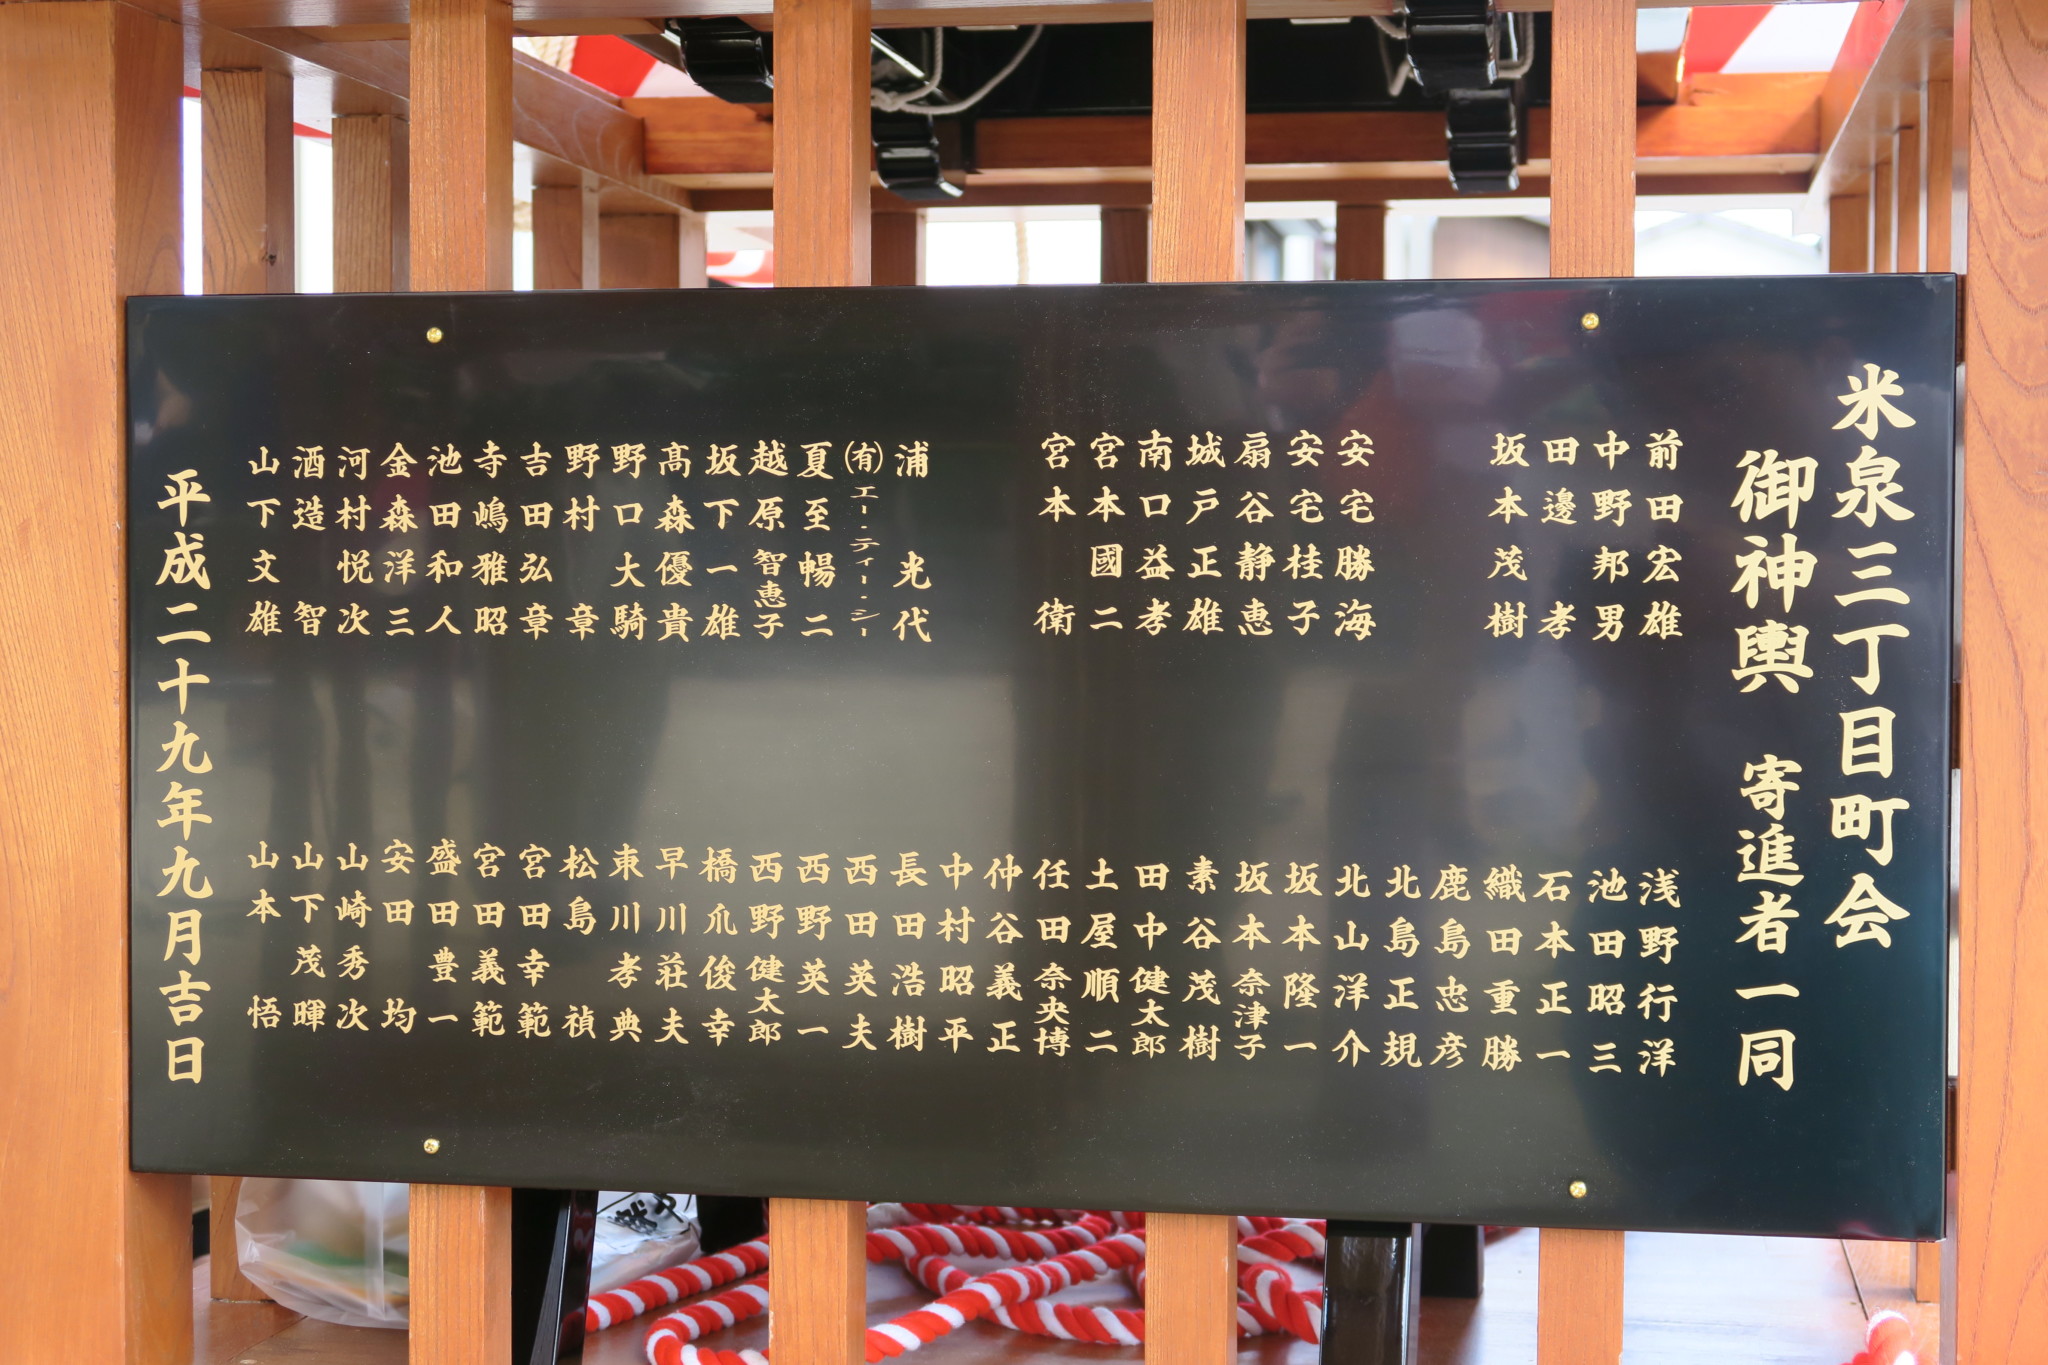 米泉三丁目町会
御神輿 寄進者一同
前田宏雄
中野邦男
田邊孝
坂本茂樹
安宅勝海
安宅桂子
扇谷静恵
城戸正雄
南口益孝
宮本國二
宮本衛
浦光代
㈲エー・ティー・シー
夏至暢二
越原智恵子
坂下一雄
髙森優貴
野口大騎
野村章
吉田弘章
寺嶋雅昭
池田和人
金森洋三
河村悦次
酒造智
山下文雄
浅野行洋
池田昭三
石本正一
織田重勝
鹿島忠彦
北島正規
北山洋介
坂本隆一
坂本奈津子
素谷茂樹
田中健太郎
土屋順二
任田奈央博
仲谷義正
中村昭平
長田浩樹
西田英夫
西野英一
西野健太郎
橋爪俊幸
早川荘夫
東川孝典
松島禎
宮田幸範
宮田義範
盛田豊一
安田均
山崎秀次
山下茂暉
山本悟
平成二十九年九月吉日